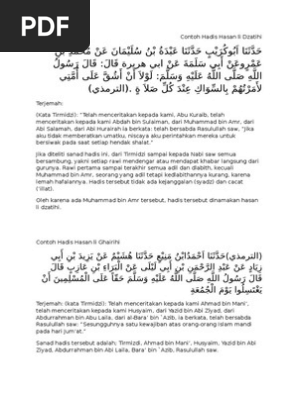 PDF
Contoh Hadis Hasan li Dzatihi
حَدَّثَنَا أَبُوكُرَيْبٍ حَدَّثَنَا عَبْدَةُ بْنُ سُلَيْمَانَ عَنْ مُحَمَّدِ بْنِ
عَمْرٍوعَنْ أَبِي سَلَمَةَ عَنْ ابي هريرة قَالَ: قَالَ رَسُولُ
اللَّهِ صَلَّى اللَّهُ عَلَيْهِ وَسَلَّمَ: لَوْلاَ أَنْ أَشُقَّ عَلَى أُمَّتِي
لأَمَرْتُهُمْ بِالسِّوَاكِ عِنْدَ كُلِّ صَلاَ ةٍ .(الترمذي)
Terjemah:
(Kata Tirmidzi): "Telah menceritakan kepada kami, Abu Kuraib, telah
menceritakan kepada kami Abdah bin Sulaiman, dari Muhammad bin Amr, dari
Abi Salamah, dari Abi Hurairah ia berkata: telah bersabda Rasulullah saw, "Jika
aku tidak memberatkan umatku, niscaya aku perintahkan mereka untuk
bersiwak pada saat setiap hendak shalat."
Jika diteliti sanad hadis ini, dari Tirmidzi sampai kepada Nabi saw semua
bersambung, yakni setiap rawi mendengar atau mendapat khabar langsung dari
gurunya. Rawi pertama sampai terakhir semua adil dan dlabith, kecuali
Muhammad bin Amr, seorang yang adil tetapi kedlabithannya kurang, karena
lemah hafalannya. Hadis tersebut tidak ada kejanggalan (syadz) dan cacat
('illat).
Oleh karena ada Muhammad bin Amr tersebut, hadis tersebut dinamakan hasan
li dzatihi.
Contoh Hadis Hasan li Ghairihi
(الترمذي)حَدَّثَنَا أَحْمَدُابْنُ مَنِيْعٍ حَدَّثَنَا هُشَيْمٌ عَنْ يَزِيدَ بْنِ أَبِي
زِيَادٍ عَنْ عَبْدِ الرَّحْمَنِ بْنِ أَبِي لَيْلَى عَنْ الْبَرَاءِ بْنِ عَازِبٍ قَالَ
قَالَ رَسُولُ اللَّهِ صَلَّى اللَّهُ عَلَيْهِ وَسَلَّمَ حَقًّا عَلَى الْمُسْلِمِينَ أَنْ
يَغْتَسِلُوا يَوْمَ الْجُمُعَةِ
Terjemah: (kata Tirmidzi): Telah menceritakan kepada kami Ahmad bin Mani',
telah menceritakan kepada kami Husyaim, dari Yazid bin Abi Ziyad, dari
Abdurrahman bin Abu Laila, dari al-Bara' bin `Azib, ia berkata, telah bersabda
Rasulullah saw: "Sesungguhnya satu kewajiban atas orang-orang Islam mandi
pada hari jum'at."
Sanad hadis tersebut adalah: Tirmidzi, Ahmad bin Mani', Husyaim, Yazid bin Abi
Ziyad, Abdurrahman bin Abi Laila, Bara' bin `Azib, Rasulullah saw.